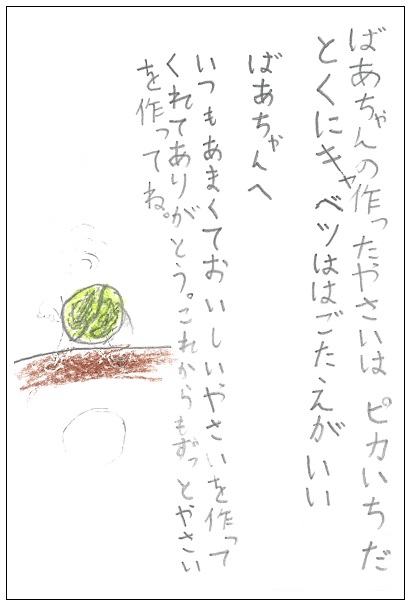 ばあちゃんの作ったやさいは ピカいちだ
とくにキャベツははごたえがいい
ばあちゃんへ
いつもあまくておいしいやさいを作って
くれてありがとう。これからもずっとやさい
を作ってね。